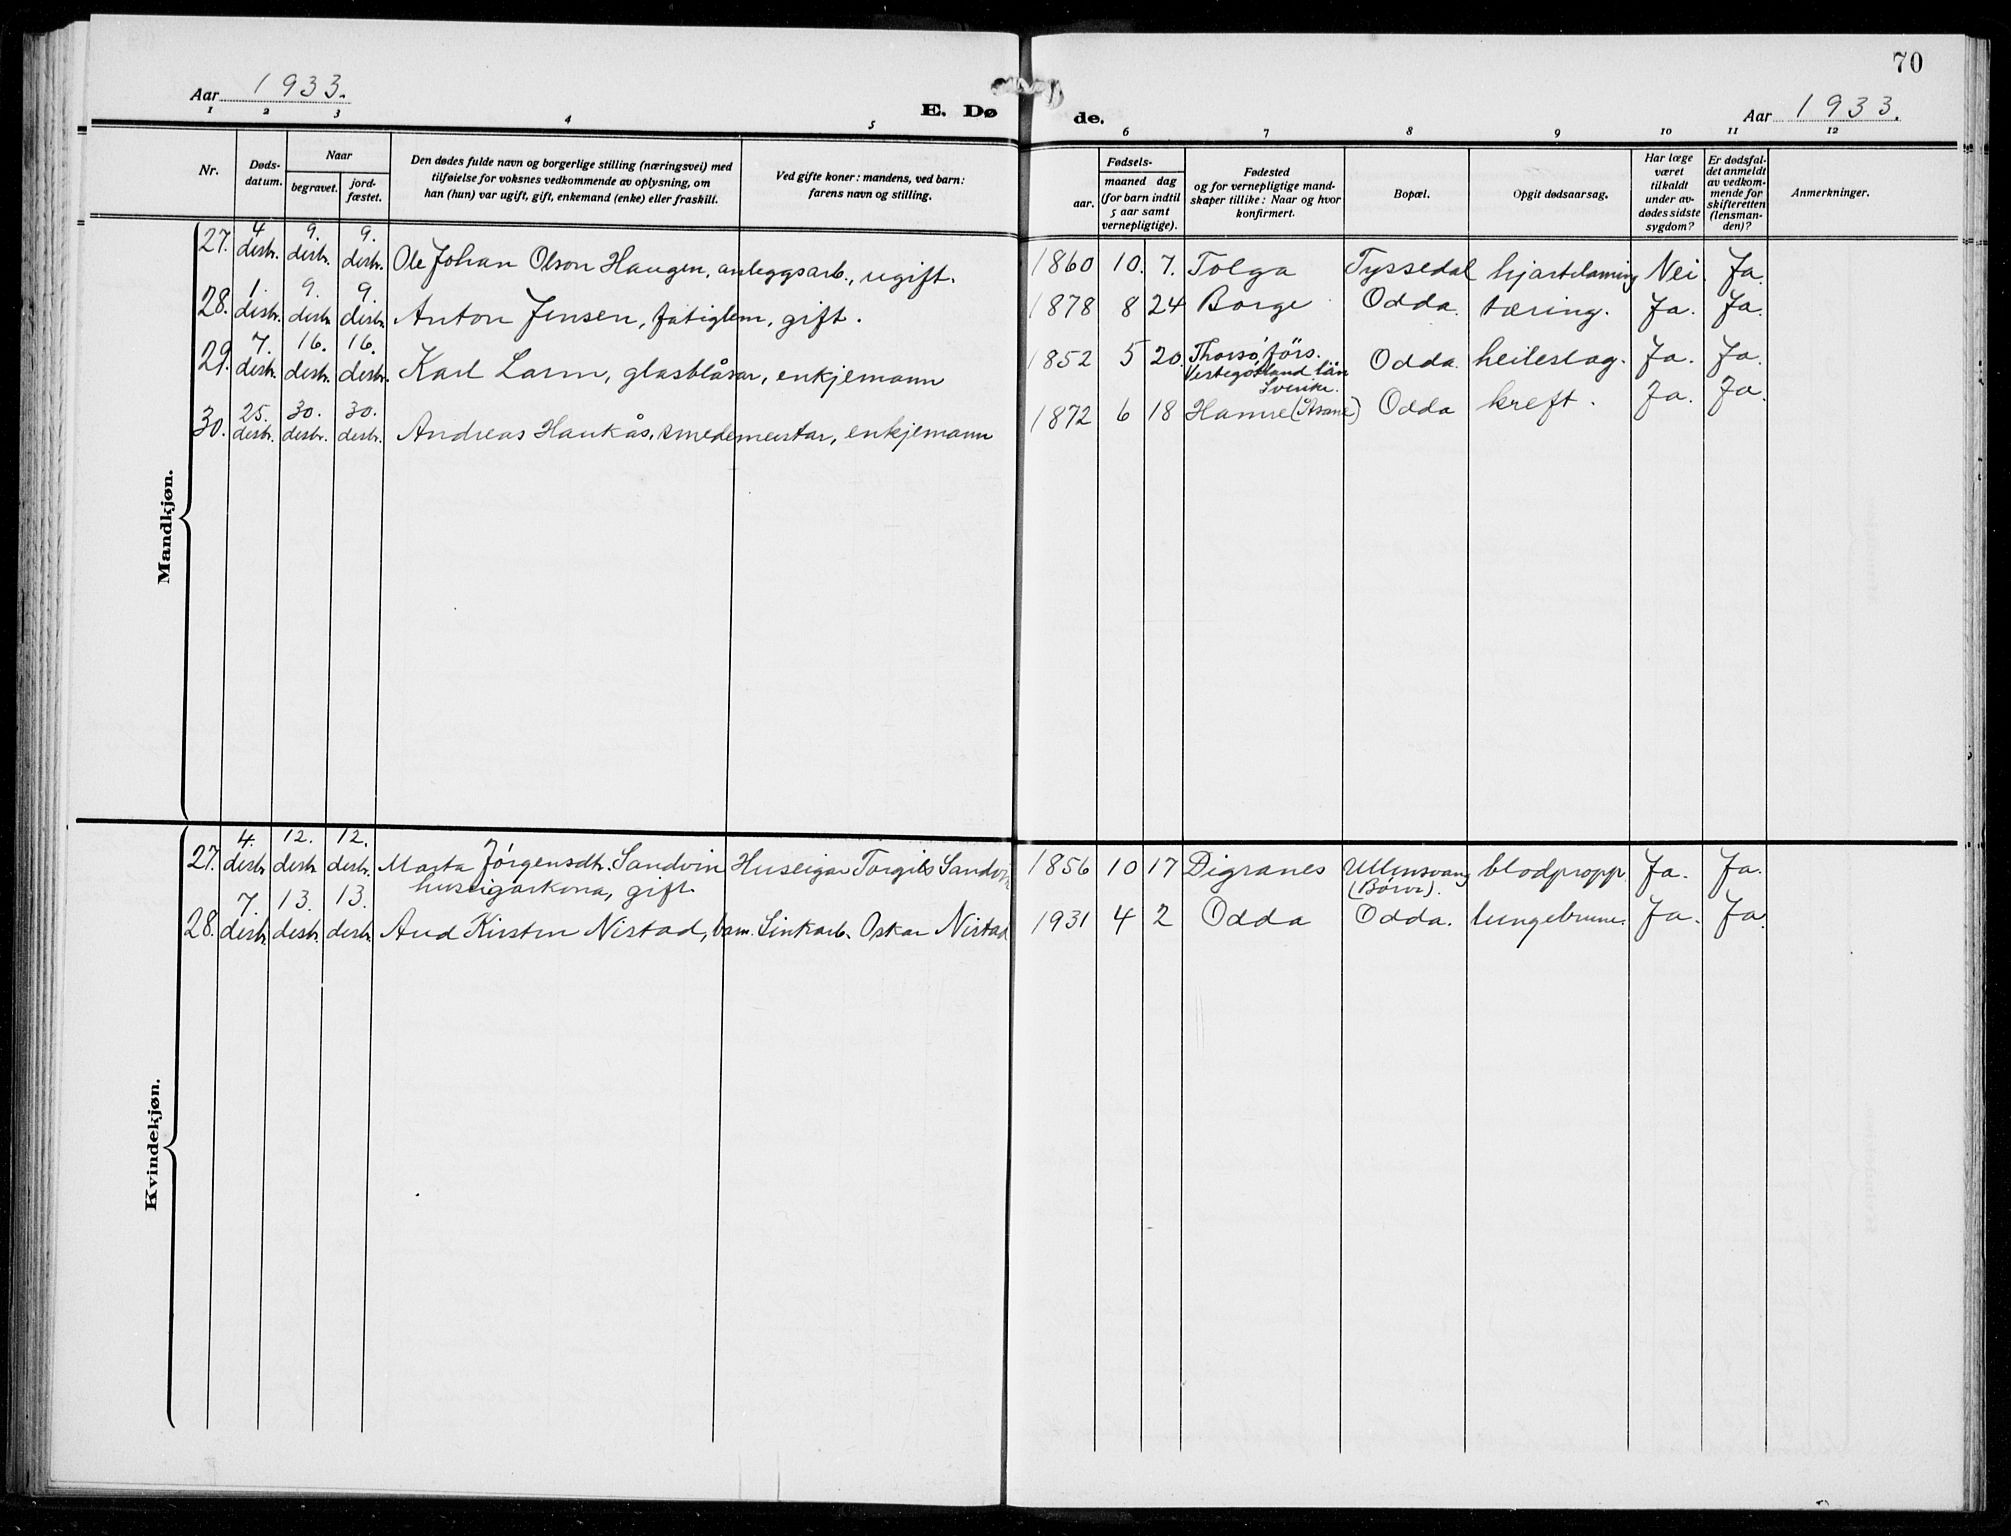 70
Aar 1933.
E. Dø
de.
Aar 1933.
1 2 3 4 5 6 7 8 9 10 11 12
Nr.
Døds-
datum.
Naar
begravet.
jord-
fæstet.
Den dødes fulde navn og borgerlige stilling (næringsvei) med
tilføielse for voksnes vedkommende av oplysning, om
han (hun) var ugift, gift, enkemand (enke) eller fraskilt.
Ved gifte koner: mandens, ved barn:
farens navn og stilling.
Fødsels-
aar.
maaned dag
(for barn indtil
5 aar samt
vernepligtige).
Fødested
og for vernepligtige mand-
skaper tillike: Naar og hvor
konfirmert.
Bopæl.
Opgit dødsaarsag.
Har læge
været
tilkaldt
under av-
dødes sidste
sygdom?
Er dødsfal-
det anmeldt
av vedkom-
mende for
skifteretten
(lensman-
den)?
Anmerkninger.
Mandkjøn.
27. 4 desbr. 9. desbr. 9. desbr. Ole Johan Olson Haugen, anleggsarb., ugift. 1860 10. 7. Tolga Tyssedal hjartelaming Nei Ja.
28. 1. desbr. 9. desbr. 9. desbr. Anton Jensen, fatiglem, gift. 1878 8 24 Borge Odda. tæring. Ja. Ja.
29. 7. desbr. 16. desbr. 16. desbr. Karl Larm, glasblåsar, enkjemann 1852 5 20. Thorsø førs. Vestegötland län Sverike. Odda. heileslag. Ja. Ja.
30. 25. desbr. 30. desbr. 30. desbr. Andreas Haukås, smedemeistar, enkjemann 1872 6 18 Hamre (Åsane) Odda kreft. Ja. Ja.
Kvindekjøn.
27. 4. desbr. 12. desbr. 12. desbr. Marta Jørgensdtr. Sandvin Huseigar Torgils Sandvin 1856 10 17 Digranes Ullensvang blodpropp Ja. Ja.
huseigarkona, gift. (Børve).
28. 7. desbr. 13. desbr. 13. desbr. Aud Kirsten Nistad, barn. Sinkarb. Oskar Nistad 1931 4 2 Odda Odda. lungebrune. Ja. Ja.